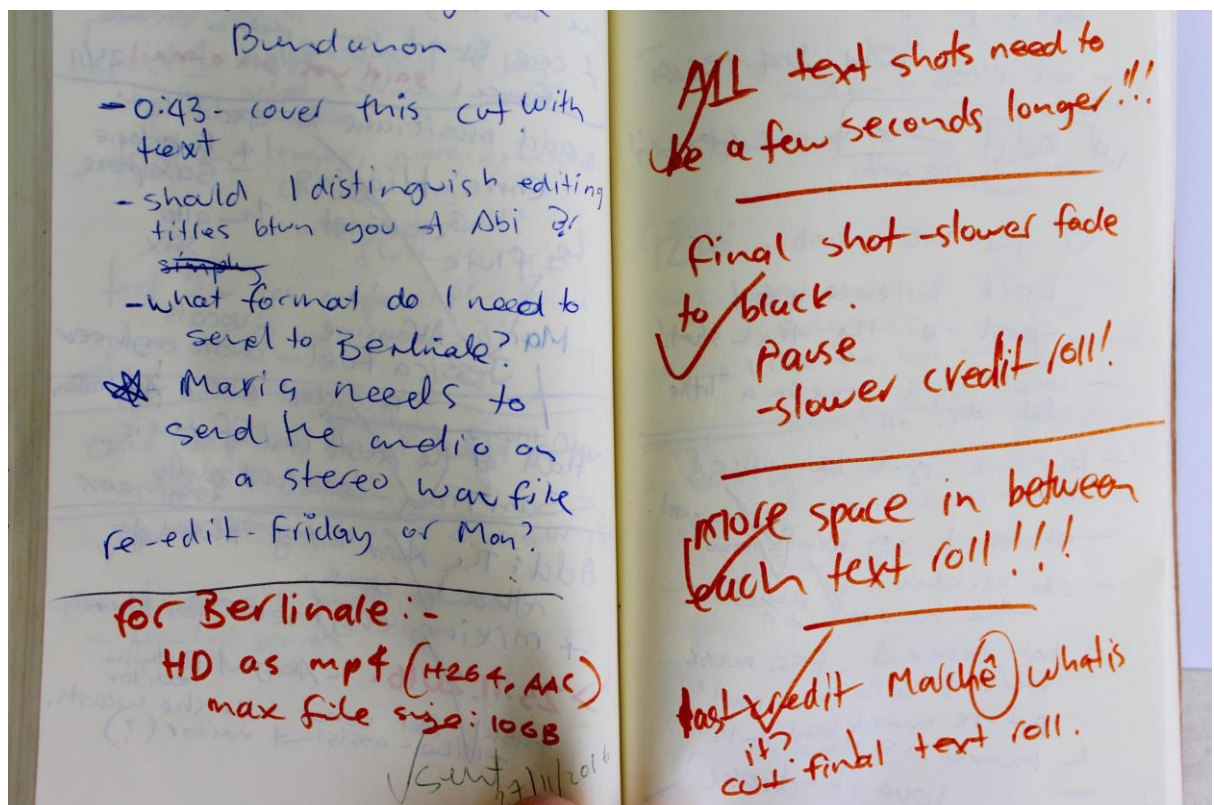 Bundanon
- 0:43 - cover this cut with
text
- should I distinguish editing
titles btwn you + Abi ?
simply
- what format do I need to
send to Berlinale?
Maria needs to
send the audio on
a stereo wav file
re-edit - Friday or Mon?
for Berlinale :-
HD as mp4 (H264, AAC)
max file size: 10GB
sent
27/11/2016
ALL text shots need to
be a few seconds longer!!!
final shot - slower fade
to black
pause
- slower credit roll!
more space in between
each text roll!!!
last credit Marchê what is
it?
cut final text roll.